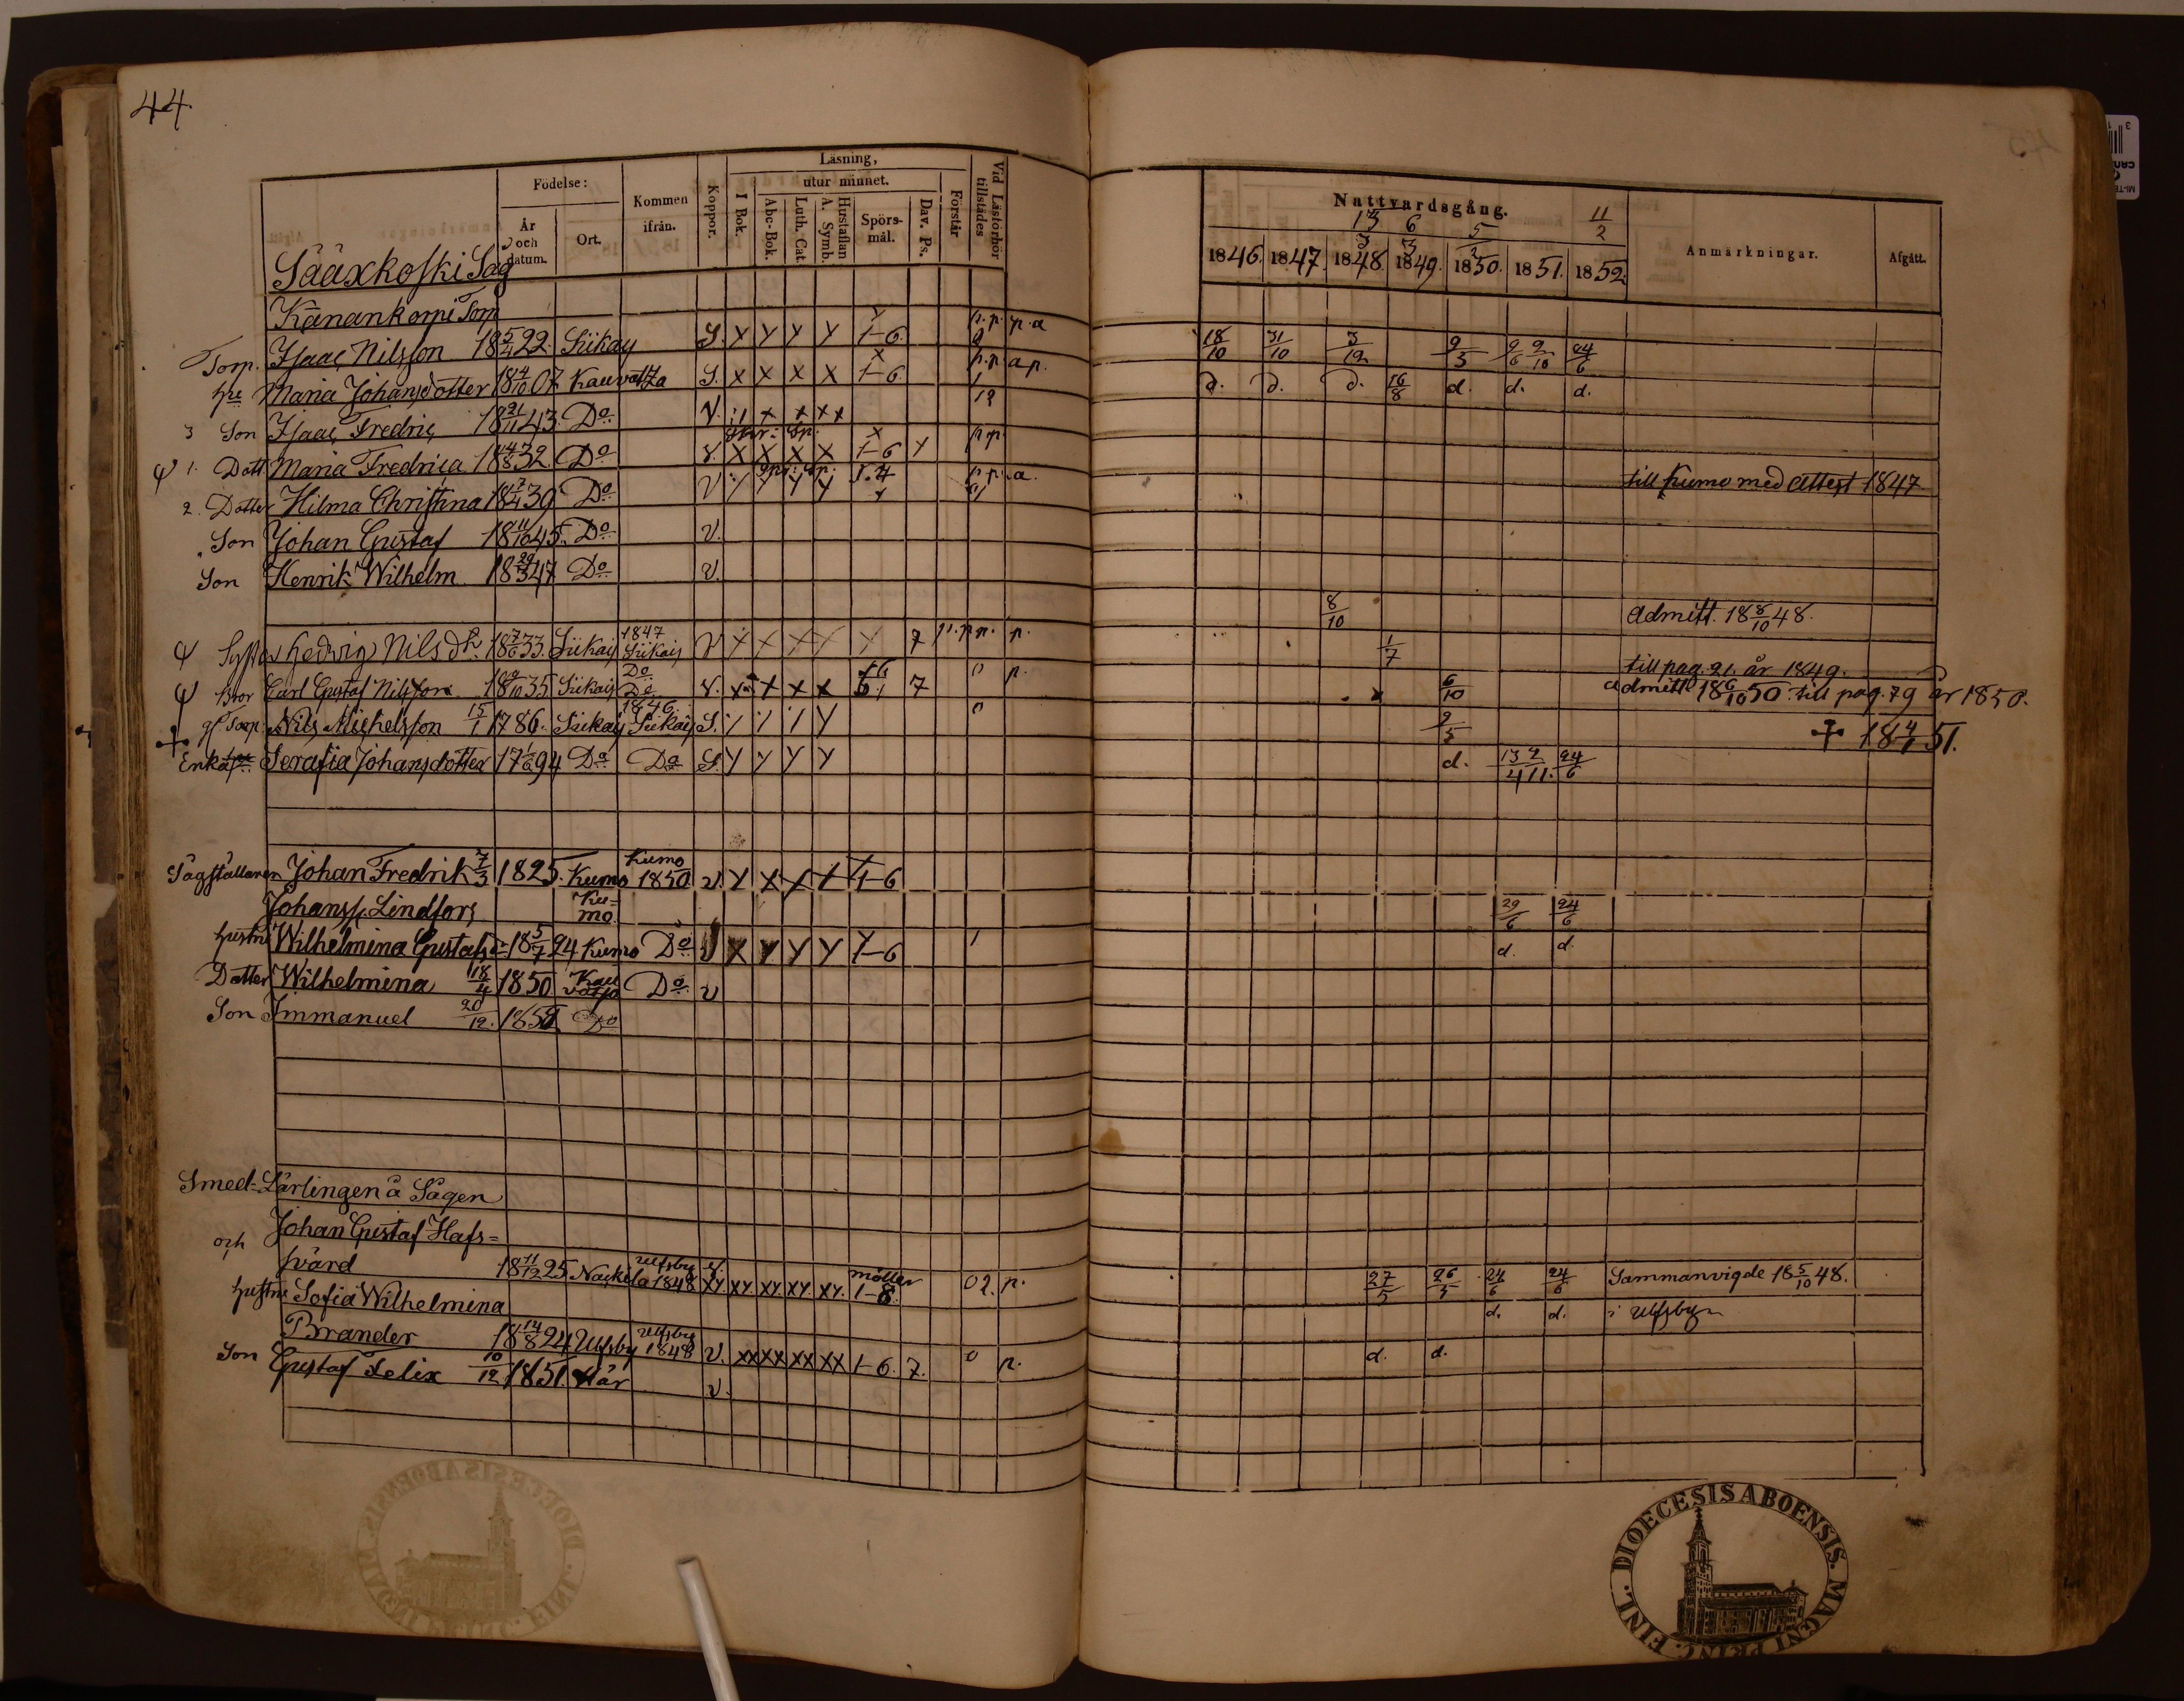 44.
Födelse:
År och datum.
Ort.
Kommen ifrån.
Koppor.
Läsning,
I Bok.
utur minnet.
Abc-Bok.
Luth. Cat.
Hustaflan A. Symb.
Spörs-mål.
Dav. Ps.
Förstår
Vid Läsförhör tillstädes
Nattvardsgång.
1846. 1847. 1848. 1849. 1850. 1851. 1852.
Anmärkningar.
Afgått.
Sääxkoski Såg
Känankorpi Torp
Torp. Isaac Nilsson 18 5/4 22. Siikais S. X Y Y Y 1-6 p.p. p.a 18/10 31/10 3/12 9/5 9/6 9/10 24/6
hu Maria Johansdotter 18 4/10 07 Kauvatza S. X X X X 1-6 p.p a p. d. d. d. 16/8 d. d. d.
3 Son Isaac Fredric 18 21/11 43. Do V.
1. Dott. Maria Fredrica 18 32 Do V. X X X X 1-6 Y p.p. till Kumo med attest 1847
2. Dotter Hilma Christina 18 39 Do V p.p. a.
Son Johan Gustaf 18 11/10 45. Do V.
Son Henrik Wilhelm 18 29/3 47 Do V.
Syster Hedvig Nilsdr. 18 7/6 33. Siikais 1847 Siikais V 7 p.pp. p. 8/10 1/7 Admitt. 18 8/10 48. till pag. 21. år 1849.
Bror Carl Gustaf Nilsson 18 35 Siikais Do V. X X X X 7 p. 6/10 admitt 18 6/10 50 till pag. 79 år 1850.
Torp. Nils Michelsson 15/1 1786. Siikais 1846. Siikais S. 9/5 18 51.
Enka Serafia Johansdotter 17 1/6 94 Do Do S. Y Y Y Y d. 24/6
Sågställaren Johan Fredrik 7/3 1825. Kumo Kumo 1850 V. Y X X X 1-6
Johanss. Lindfors Kumo. 29/6 24/6
hustru Wilhelmina Gustafsd. 18 5/7 24 Kumo Do V X Y Y Y 1-6 d. d.
Dotter Wilhelmina 18/4 1850 Kauvatsa Do V
Son Immanuel 20/12. 1852 Do
Smed-Lärlingen å Sågen
Johan Gustaf Hafs=
och
svärd 18 11/12 25 Nackila Ulfsby 1848 V. XY. XY. XY. XY. XY. 1-8. 02. p. 27/5 26/5 24/6 24/6 Sammanvigde 18 5/10 48.
hustru Sofia Wilhelmina d. d. i Ulfsby
Brander 18 14/8 24 Ulfsby Ulfsby 1848 V. XX XX XX XX 1-6. 7. 0 p. d. d.
Son Gustaf Felix 10/12 1851. Här V.
FINL. DIOECESIS ABOENSIS. MAGNI PRINC.